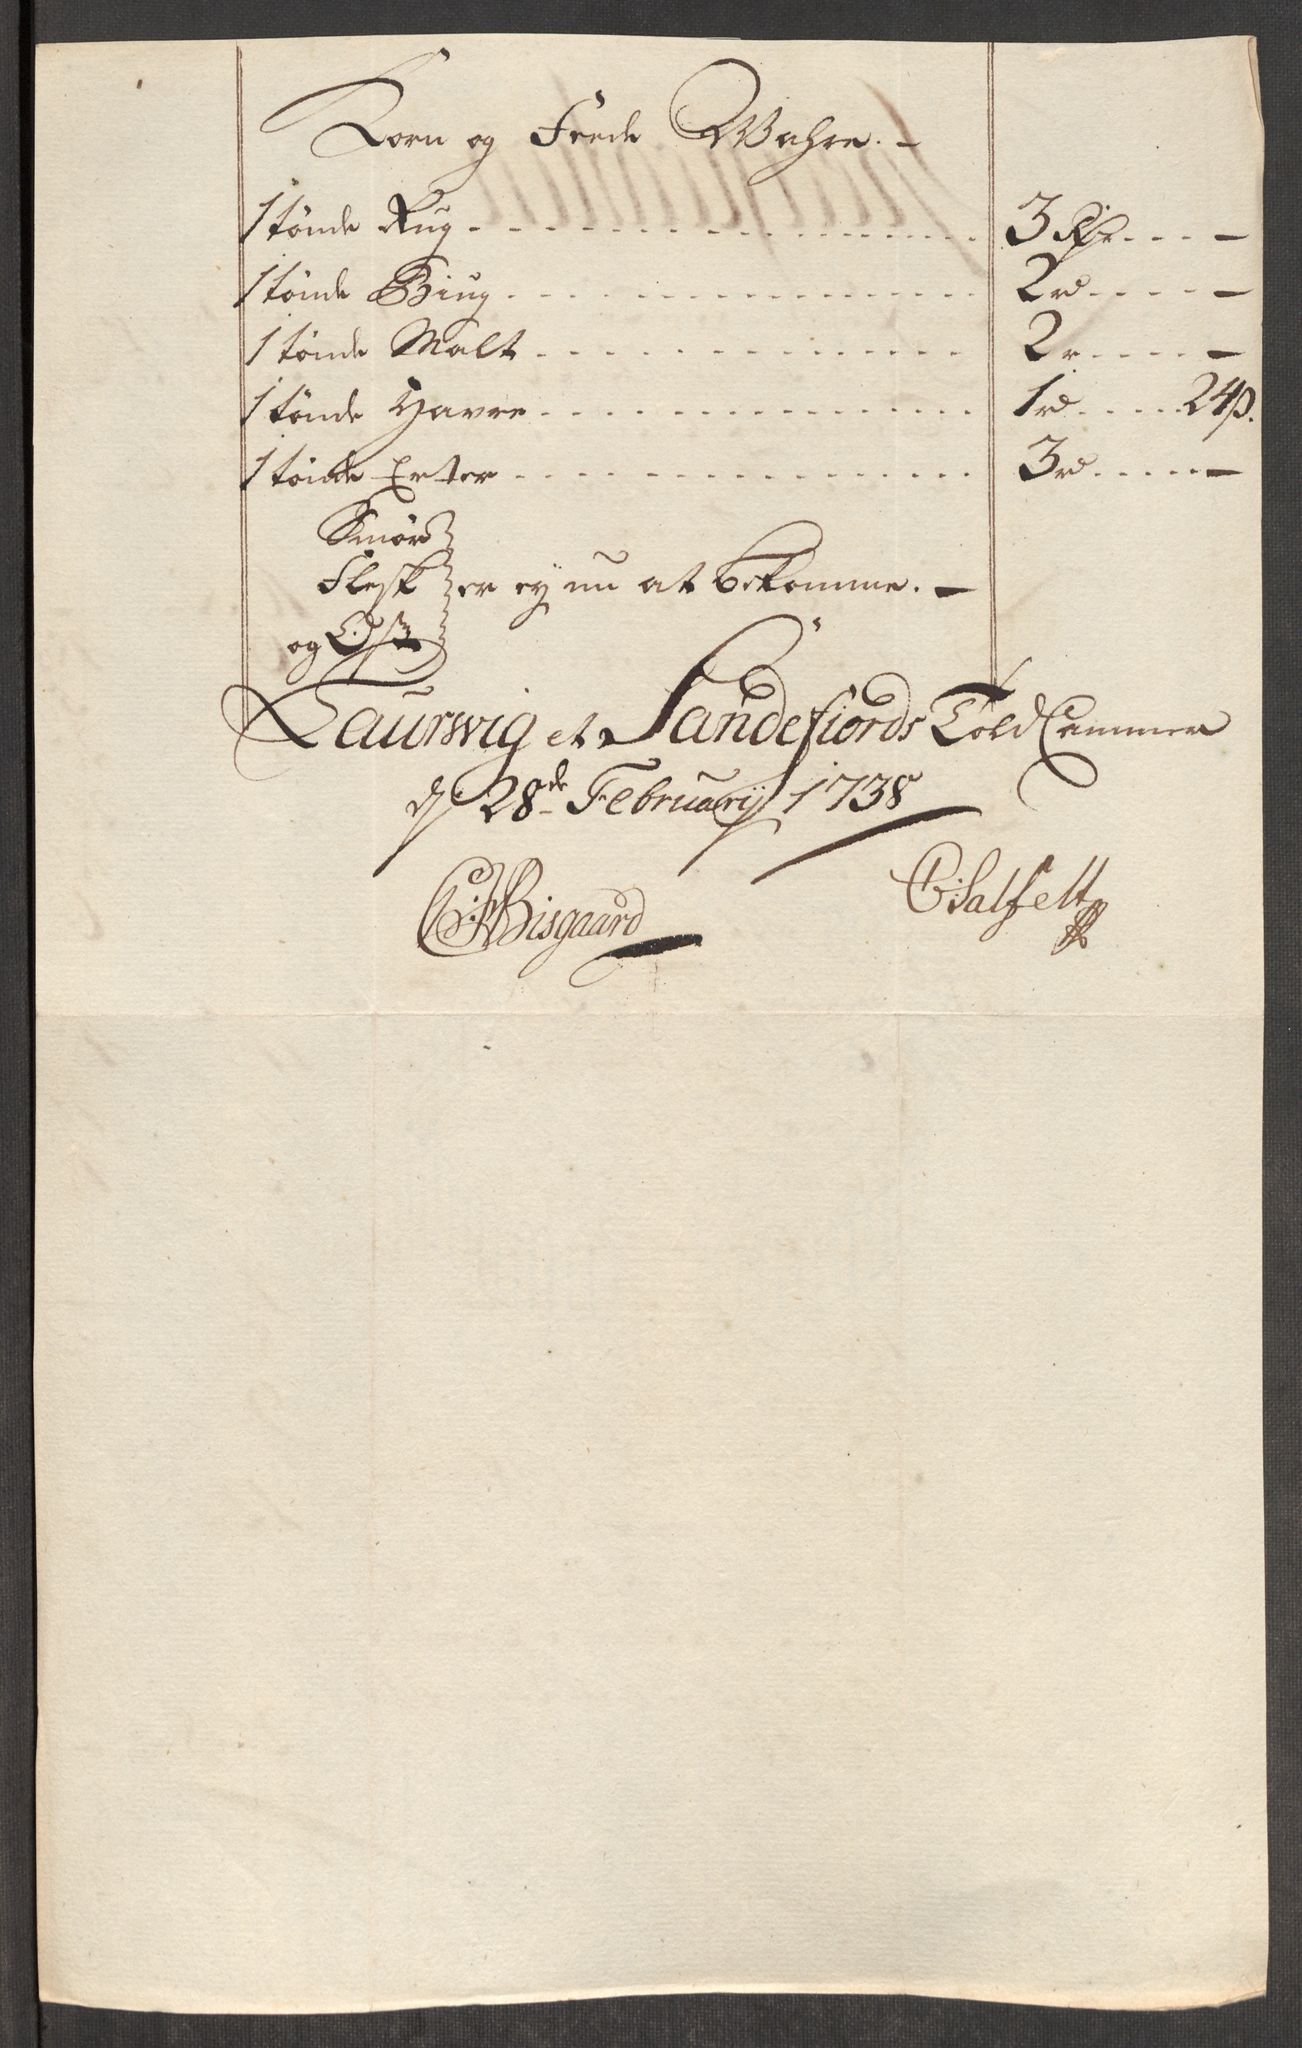 Korn og Feede Wahre. -
1 tønde Rug - - - 3 Rdr - - -
1 tønde Biug - - - 2 rd - - -
1 tønde Malt - - - 2 r - - -
1 tønde Havre - - - 1 rd - - - 24 ß.
1 tønde Erter - - - 3 rd - - -
Smør
Flesk er ey nu at bekomme. -
og Ost
Laurwig et Sandefiords Told Cammer
d. 28de Februarij 1738
Bisgaard
C: Salfelt